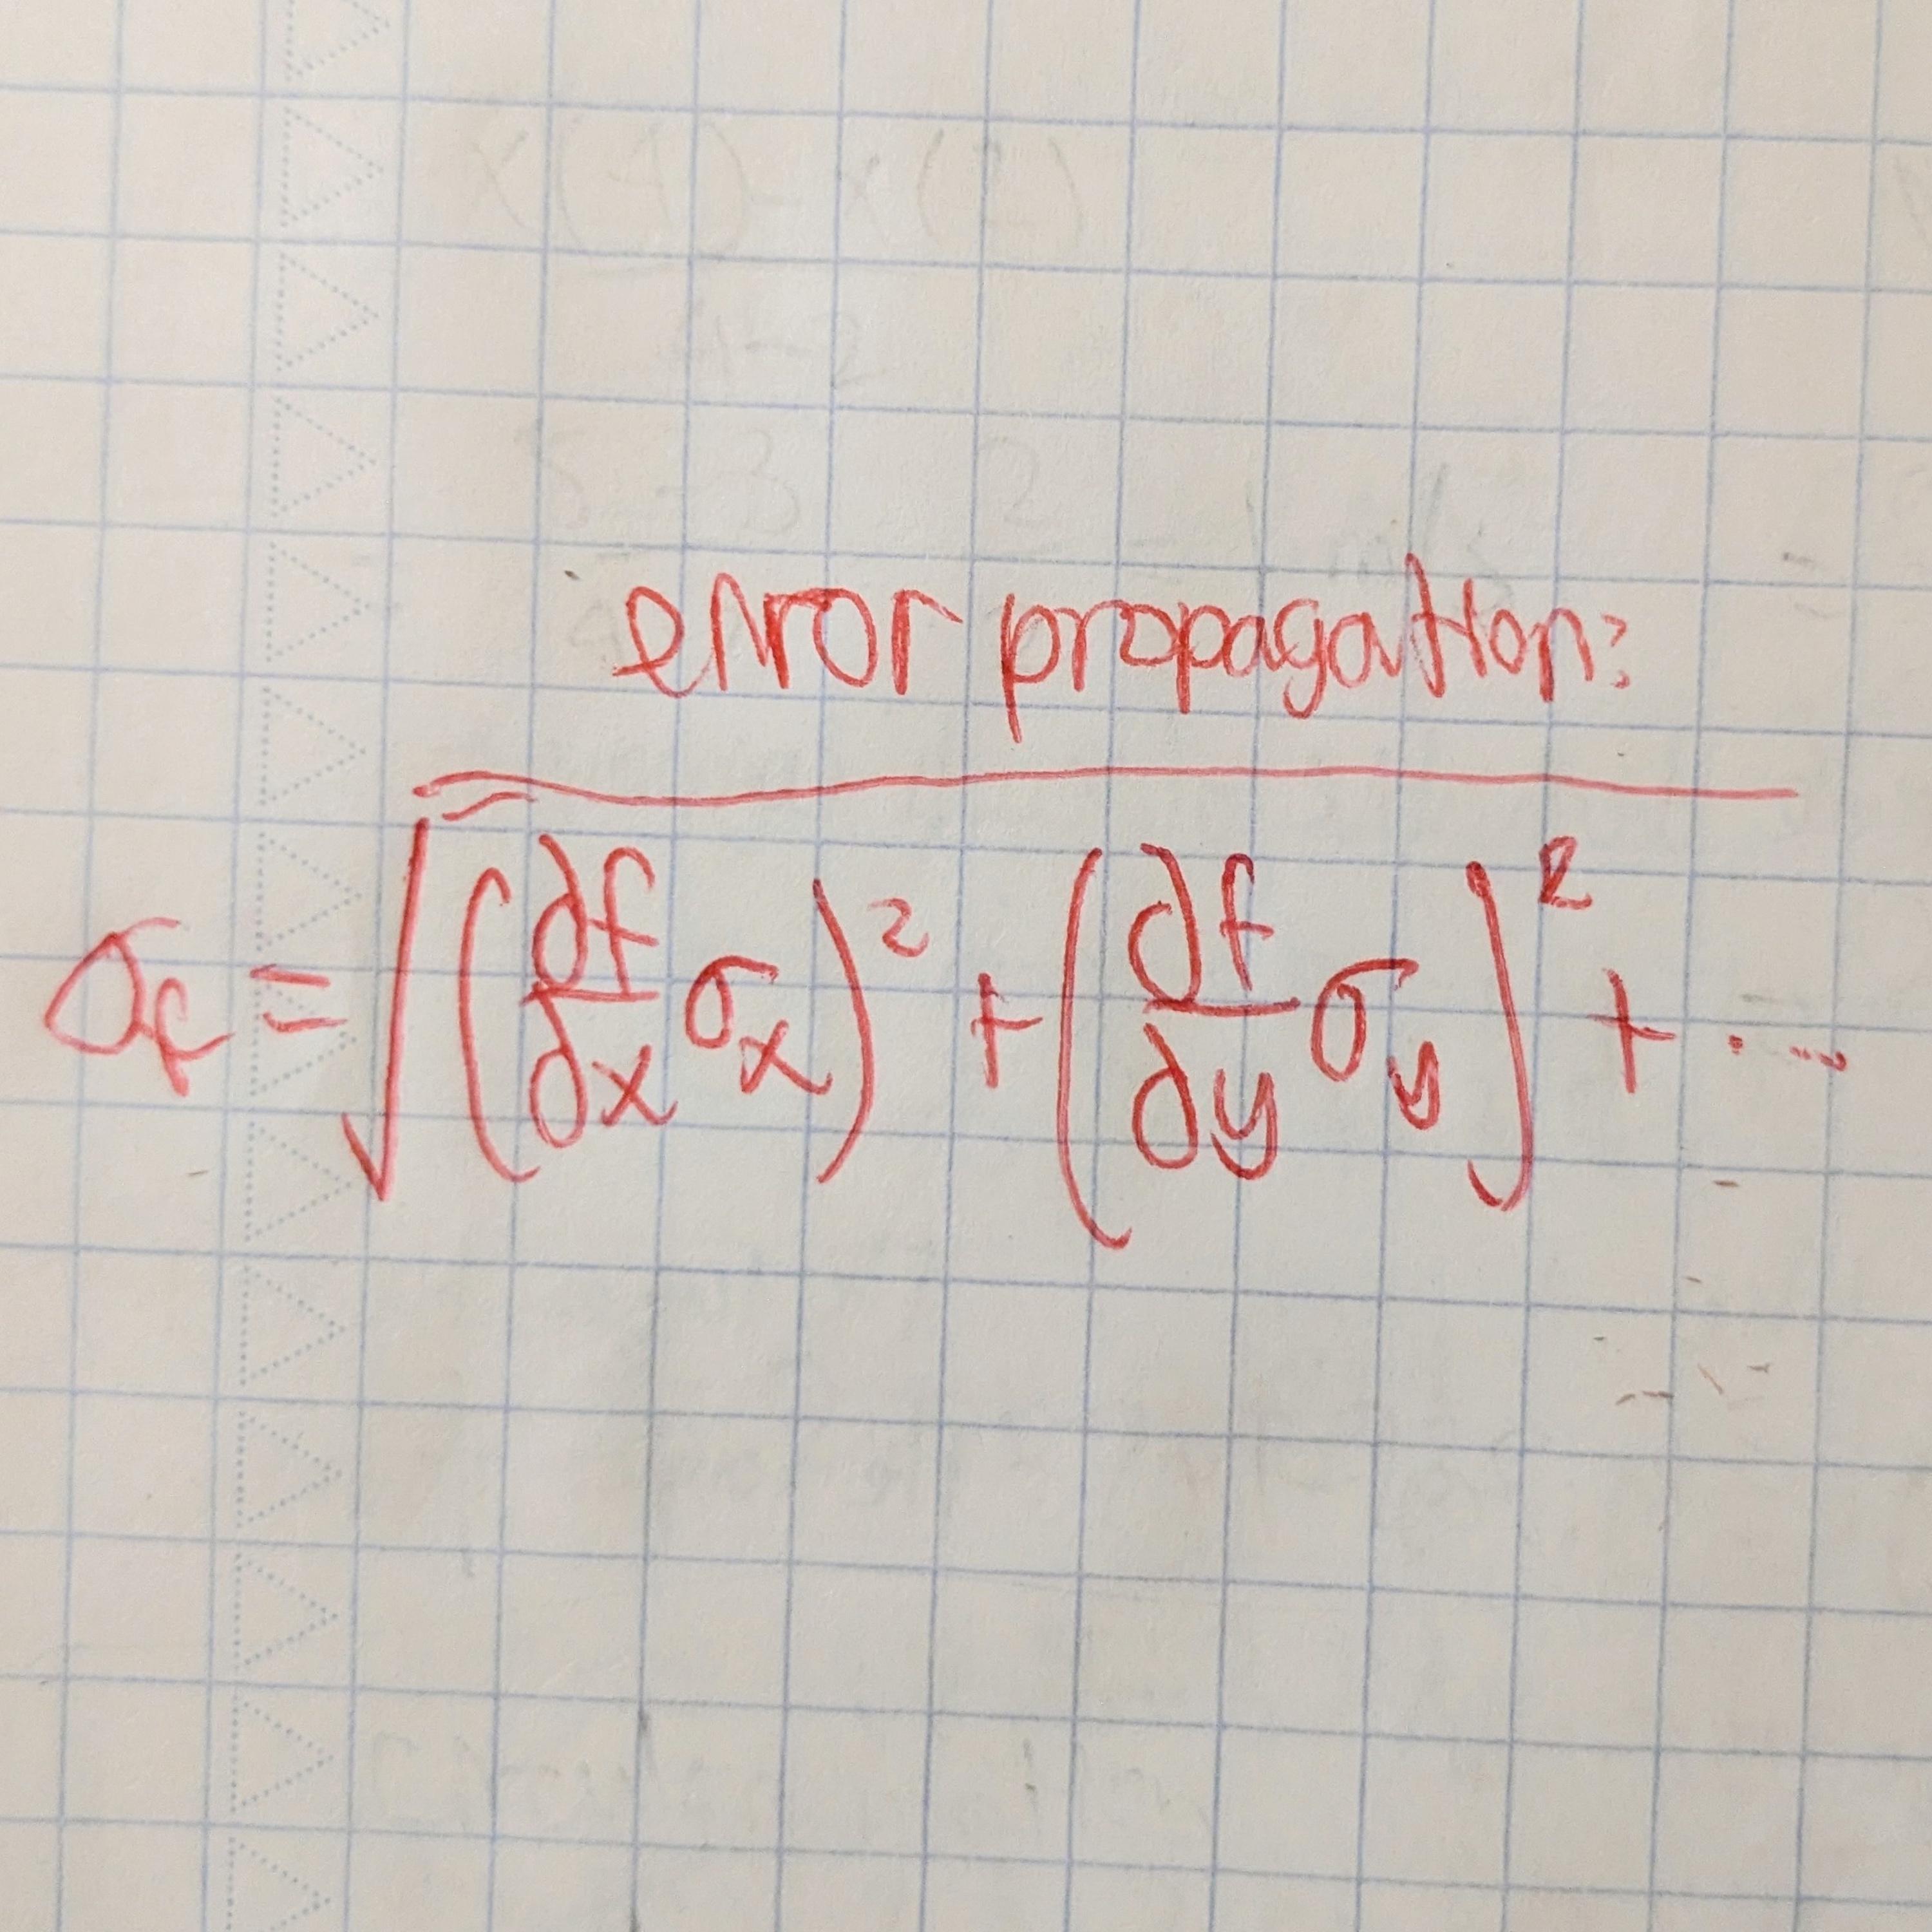 error propagation:
σ_f = √((∂f/∂x σ_x)² + (∂f/∂y σ_y)² + ...